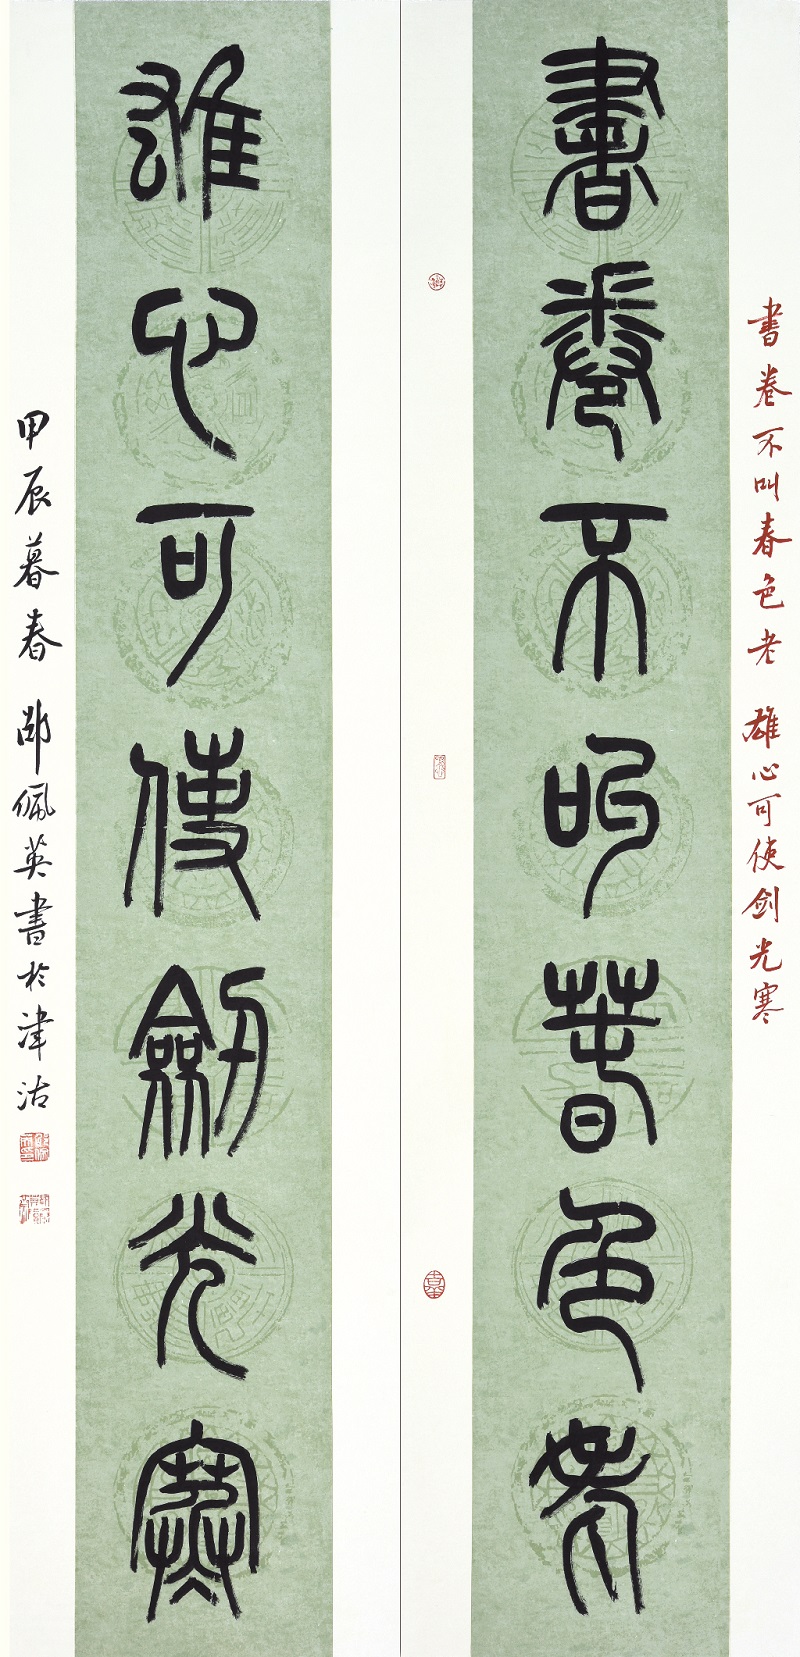 書卷不叫春色老 雄心可使剑光寒
書卷不叫春色老
雄心可使劍光寒
甲辰暮春 邵佩英書於津沽